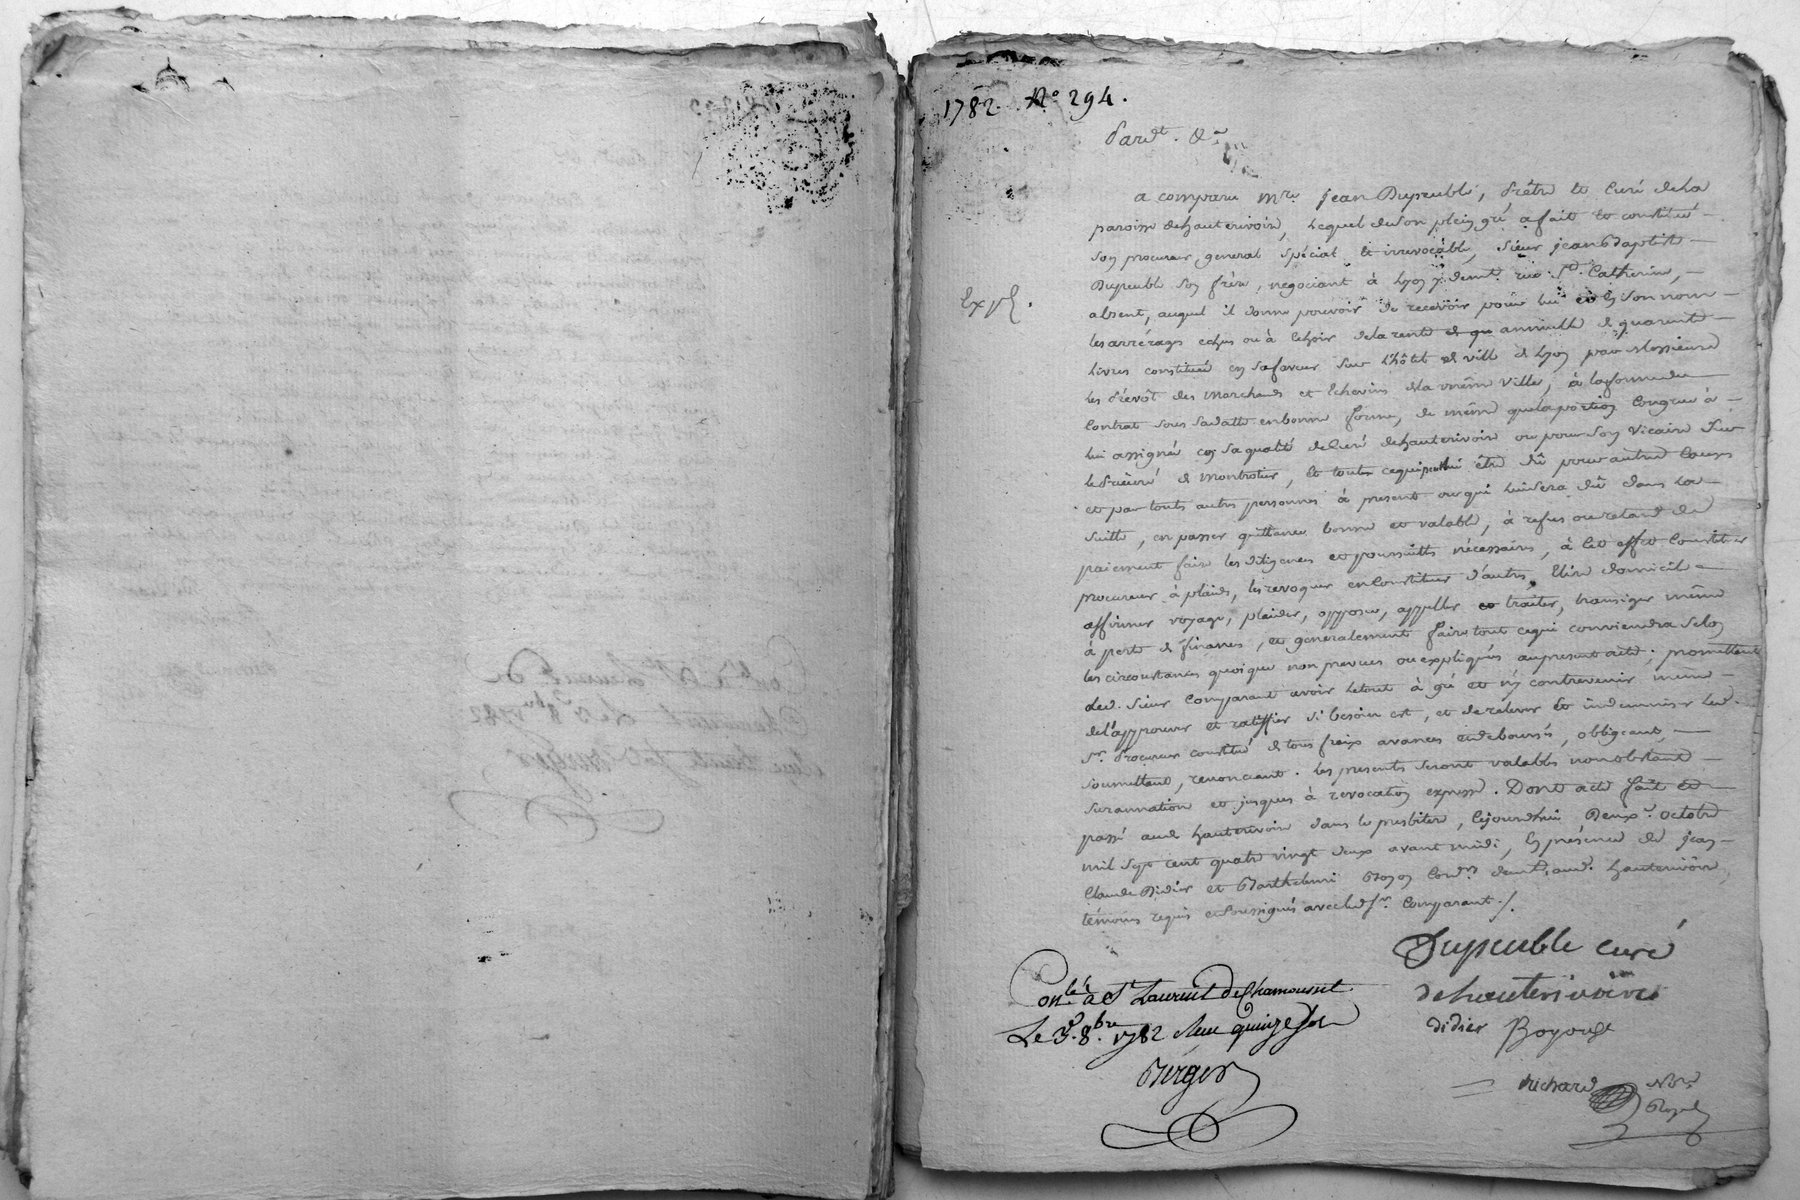 1782. N.o 294.
Pard.t &.a
a comparu m.re jean Dupeuble, Prêtre et Curé de la
paroisse dehauterivoire, Lequel deson plein gré a fait et constitué
son procureur general spécial et irrevocable, sieur jean Baptiste
Dupeuble son frère, negociant à Lyon y demt rue Ste Catherine,
Expé.
absent, auquel il donne pouvoir de recevoir pour lui et en son nom
les arrérages echus ou à Echoir dela rente annuelle de quarante
Livres constituée en safaveur sur L'hôtel de ville de Lyon par Messieurs
les Prévôt des Marchands et Echevins dela même ville, à la forme du
Contrat sous sadatte enbonne forme, de même quela portion Congrue à
lui assignée en saqualité deCuré dehauterivoire ou pour son Vicaire sur
le Prieuré de montrotier, Et toutes cequi peut lui être dû pour autres Causes
et par toutes autres personnes à present ou qui lui sera dû dans la
suitte, en passer quittance bonne et valable, à refus ou retard de
paiement faire les diligences et poursuittes nécessaires, à Cet effet Constituer
procureur à plaids, les revoquer en Constituer d'autres, Elire domicile
affirmer voyage, plaider, opposer, appeller et traiter, transiger même
à perte de finances, et generalement faire tout cequi conviendra selon
les circonstances quoique non prevues ou expliquées au present acte; promettant
Led. sieur Comparant avoir Letout à gré et n'y contrevenir même
del'approuver et ratiffier si besoin est, et de relever Et indemniser Led.
Sr. Procureur constitué de tous fraix avances et deboursés, obligeant,
soumettant, renonciant. les presentes seront valables nonobstant
surannation et jusques à revocation expresse. Dont acte fait et
passé aud hauterivoire dans le presbitere, Cejourdhui Deuxe. octobre
mil sept cent quatre vingt deux avant midi, En présence de jean
Claude Didier et Barthelemi demt aud. hauterivoire,
témoins requis et soussignés avec led Sr. Comparant./.
Dupeuble curé
de hauterivoire
didier Boyourge
Richard N.re Royal
Con.lé à St Laurent de Chamousset
Le 3. 8.bre 1782 Reçu quinze sols
Berger